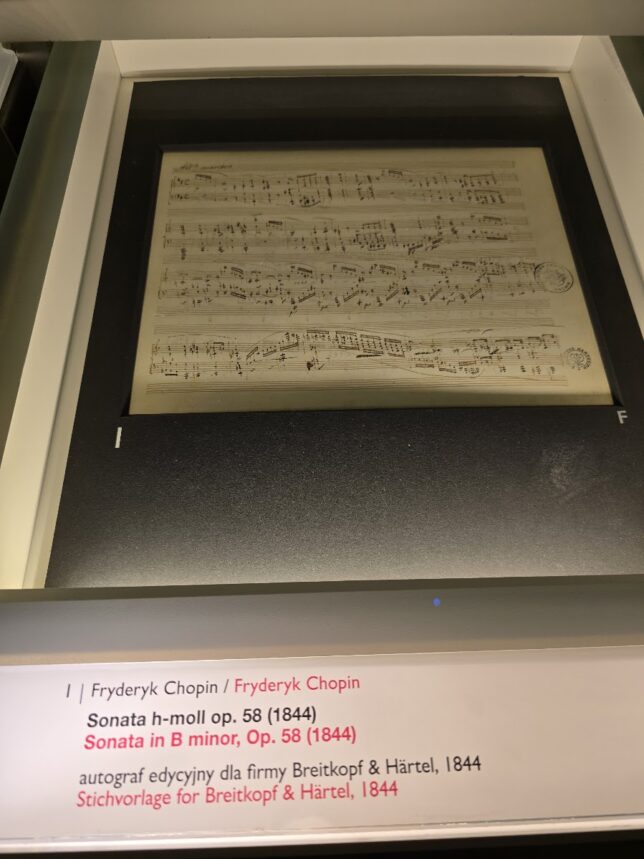 Allo maestoso
I
F
I | Fryderyk Chopin / Fryderyk Chopin
Sonata h-moll op. 58 (1844)
Sonata in B minor, Op. 58 (1844)
autograf edycyjny dla firmy Breitkopf & Härtel, 1844
Stichvorlage for Breitkopf & Härtel, 1844